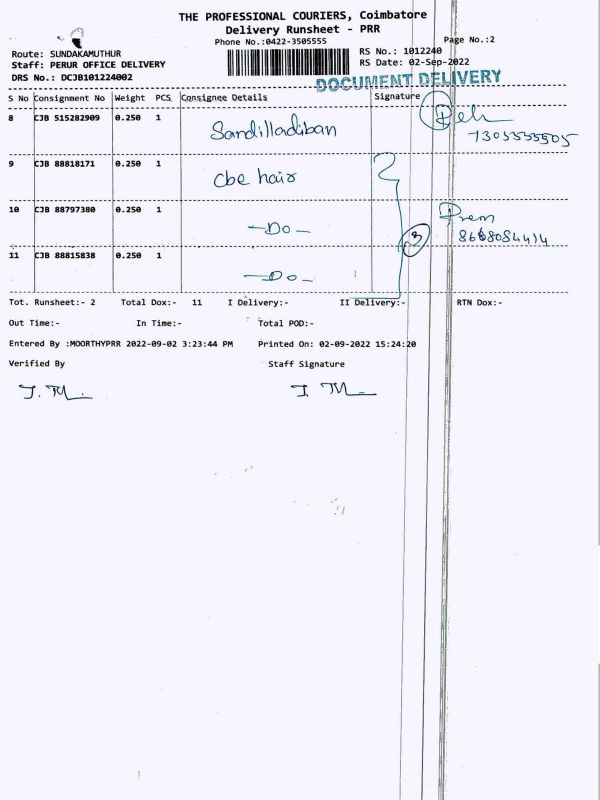 THE PROFESSIONAL COURIERS, Coimbatore
Delivery Runsheet - PRR
Phone No.:0422-3505555
Page No.:2
Route: SUNDAKAMUTHUR
RS No.: 1012240
Staff: PERUR OFFICE DELIVERY
RS Date: 02-Sep-2022
DRS No.: DCJB101224002
DOCUMENT DELIVERY
S No Consignment No Weight PCS Consignee Details Signature
8 CJB 515282909 0.250 1 Sandilladiban
7305555505
9 CJB 88818171 0.250 1 Cbe hair
10 CJB 88797380 0.250 1 -Do- 3 Prem
8668084414
11 CJB 88815838 0.250 1 -Do-
Tot. Runsheet:- 2 Total Dox:- 11 I Delivery:- II Delivery:- RTN Dox:-
Out Time:- In Time:- Total POD:-
Entered By :MOORTHYPRR 2022-09-02 3:23:44 PM Printed On: 02-09-2022 15:24:20
Verified By Staff Signature